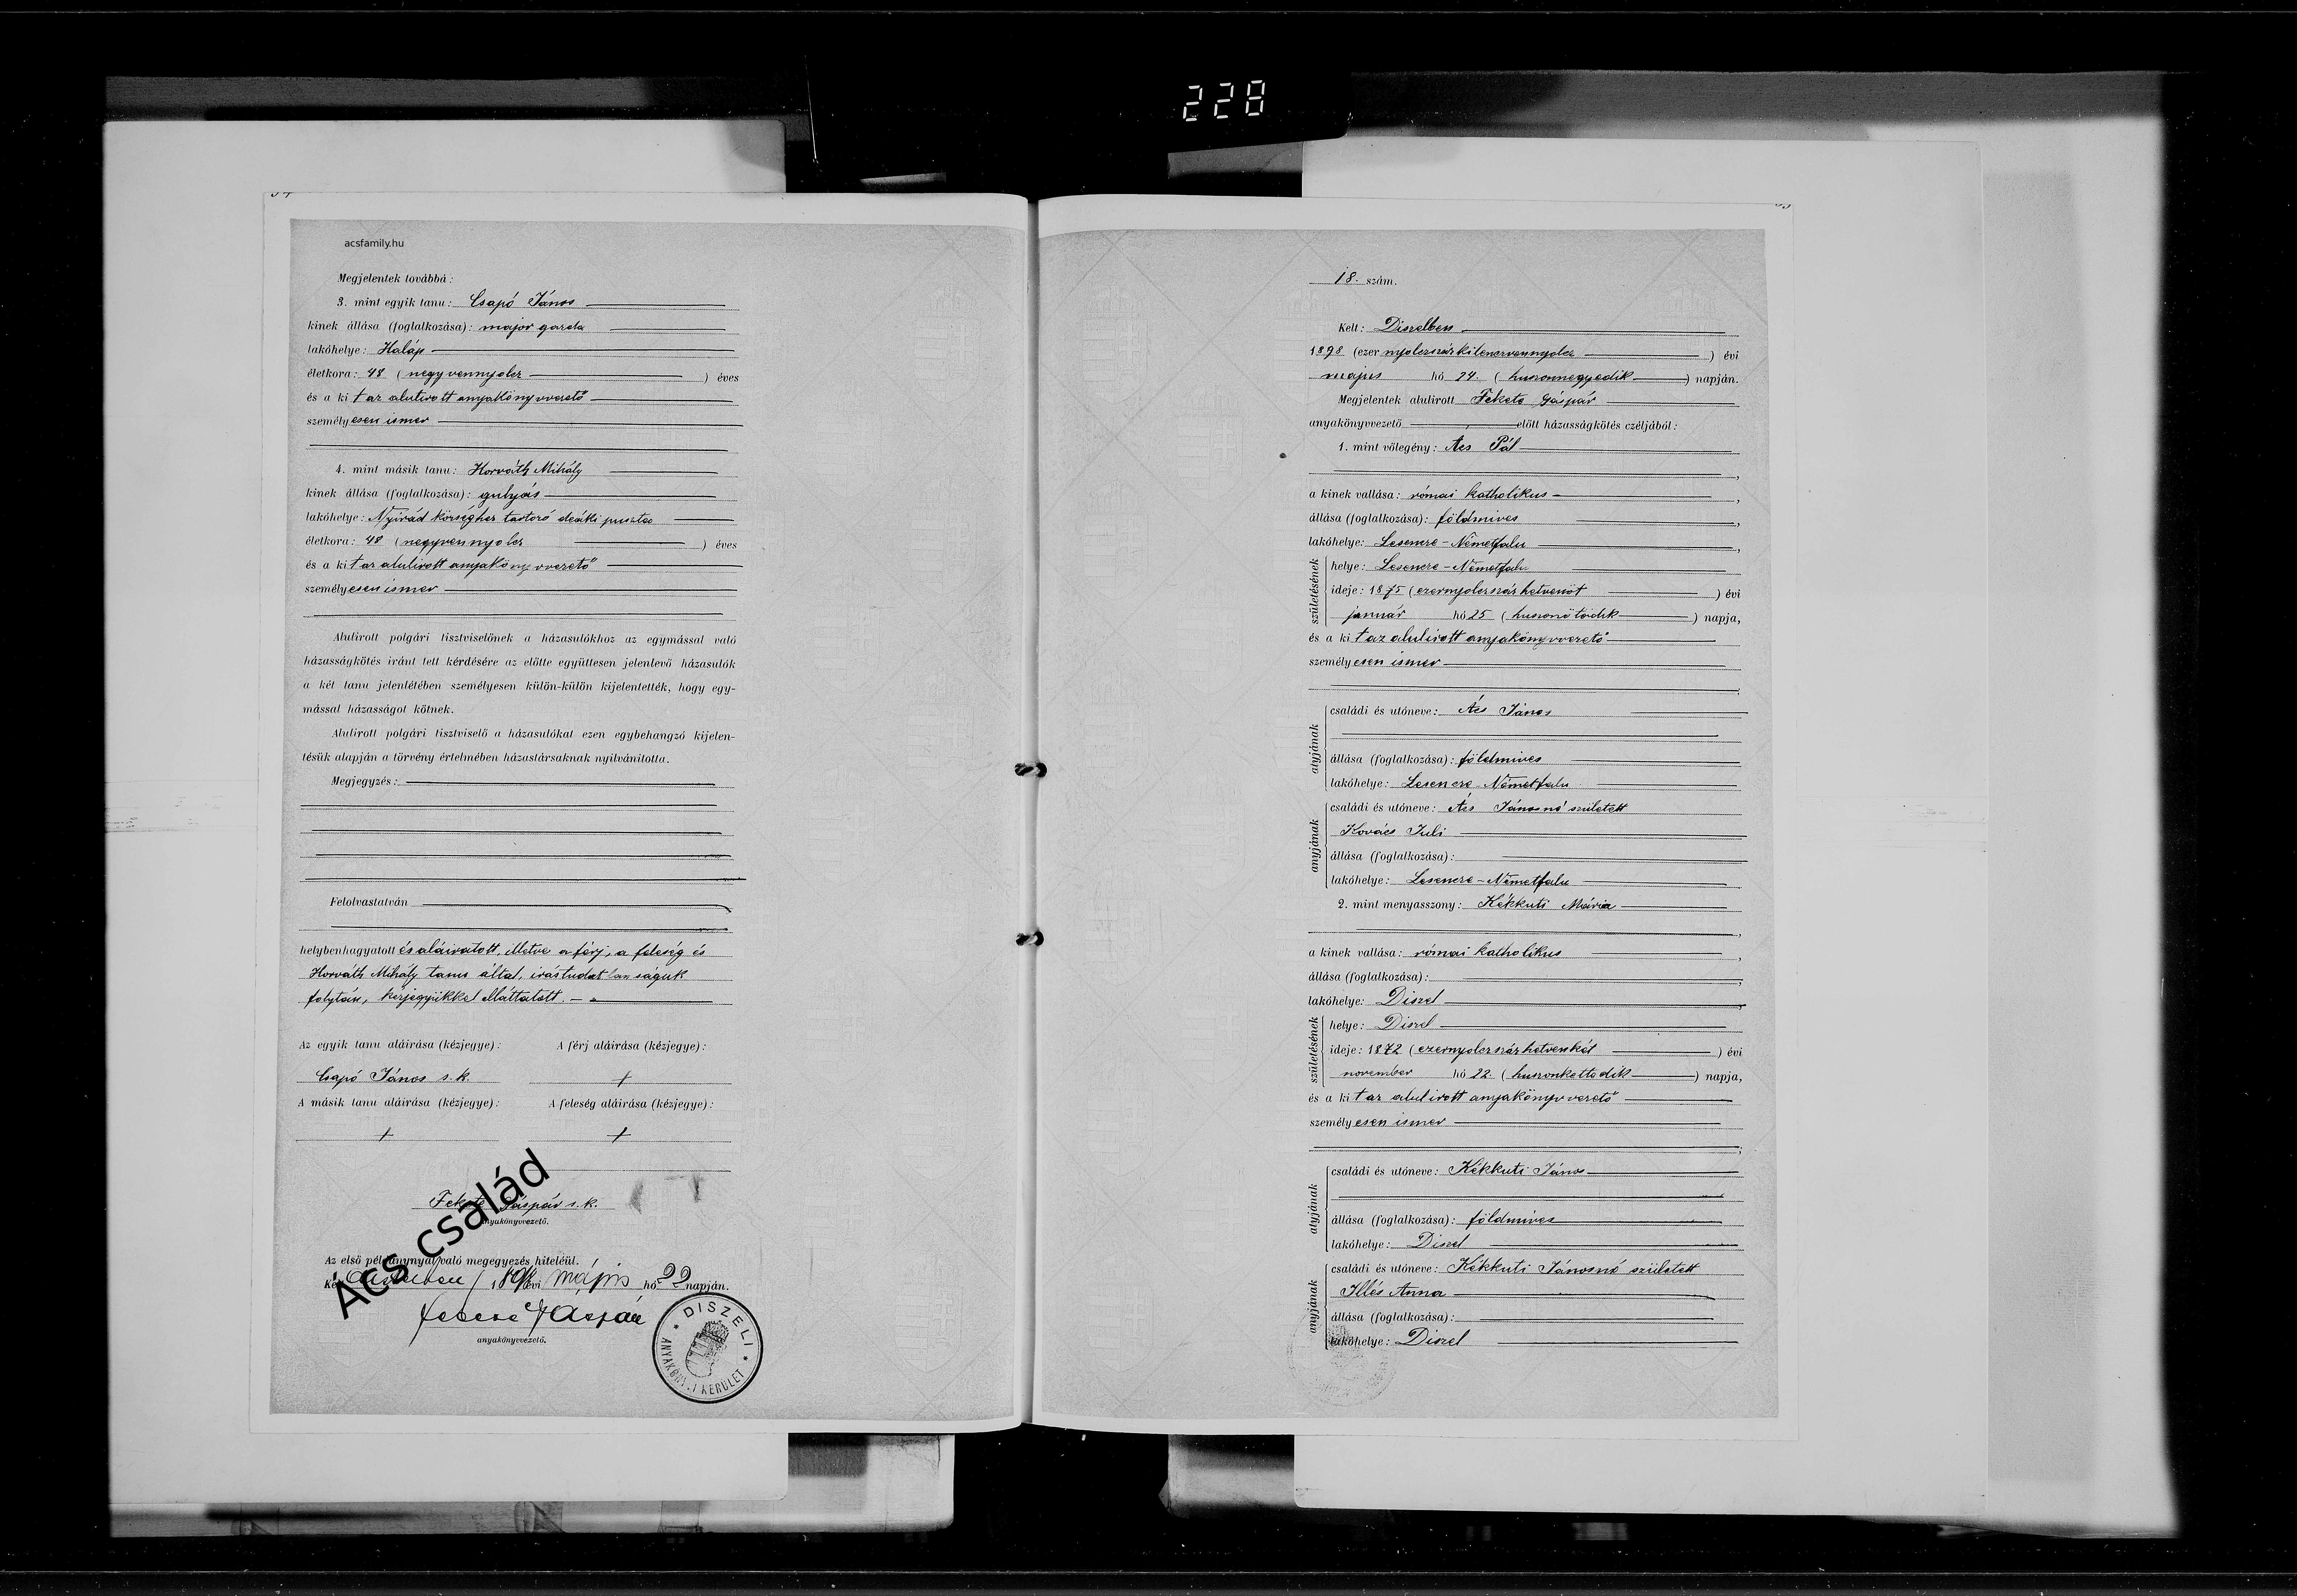 228
acsfamily.hu
Megjelentek továbbá:
3. mint egyik tanu: Csapó János
kinek állása (foglalkozása): major gazda
lakóhelye: Haláp
életkora: 48 (negyvennyolcz) éves
és a kit az alulirott anyakönyvvezető
személyesen ismer
4. mint másik tanu: Horváth Mihály
kinek állása (foglalkozása): gulyás
lakóhelye: Nyirád községhez tartozó deáki puszta
életkora: 48 (negyvennyolcz) éves
és a kit az alulirott anyakönyvvezető
személyesen ismer
Alulirott polgári tisztviselőnek a házasulókhoz az egymással való
házasságkötés iránt tett kérdésére az előtte együttesen jelenlevő házasulók
a két tanu jelenlétében személyesen külön-külön kijelentették, hogy egy-
mással házasságot kötnek.
Alulirott polgári tisztviselő a házasulókat ezen egybehangzó kijelen-
tésük alapján a törvény értelmében házastársaknak nyilvánitotta.
Megjegyzés:
Felolvastatván
helybenhagyatott és aláiratott, illetve a férj, a feleség és
Horváth Mihály tanu által, irástudatlanságuk
folytán, kézjegyükkel elláttatott.
Az egyik tanu aláirása (kézjegye): A férj aláirása (kézjegye):
Csapó János s. k. +
A másik tanu aláirása (kézjegye): A feleség aláirása (kézjegye):
+ +
Fekete Gáspár s. k.
anyakönyvvezető.
Ács család
Az első példánynyal való megegyezés hiteléül.
Kelt Diszelben, 1898 évi május hó 22 napján.
Fekete Gáspár
anyakönyvvezető.
DISZELI ANYAKÖNYVI KERÜLET
18. szám.
Kelt: Diszelben
1898 (ezer nyolczszázkilenczvennyolcz) évi
május hó 24. (huszonnegyedik) napján.
Megjelentek alulirott Fekete Gáspár
anyakönyvvezető előtt házasságkötés czéljából:
1. mint vőlegény: Ács Pál
a kinek vallása: római katholikus
állása (foglalkozása): földmives
lakóhelye: Lesencze-Németfalu
születésének
helye: Lesencze-Németfalu
ideje: 1875 (ezernyolczszázhetvenöt) évi
január hó 25 (huszonötödik) napja,
és a kit az alulirott anyakönyvvezető
személyesen ismer
atyjának
családi és utóneve: Ács János
állása (foglalkozása): földmives
lakóhelye: Lesencze-Németfalu
anyjának
családi és utóneve: Ács Jánosné született
Kovács Juli
állása (foglalkozása):
lakóhelye: Lesencze-Németfalu
2. mint menyasszony: Kékkuti Mária
a kinek vallása: római katholikus
állása (foglalkozása):
lakóhelye: Diszel
születésének
helye: Diszel
ideje: 1872 (ezernyolczszázhetvenkét) évi
november hó 22. (huszonkettedik) napja,
és a kit az alulirott anyakönyvvezető
személyesen ismer
atyjának
családi és utóneve: Kékkuti János
állása (foglalkozása): földmives
lakóhelye: Diszel
anyjának
családi és utóneve: Kékkuti Jánosné született
Illés Anna
állása (foglalkozása):
lakóhelye: Diszel